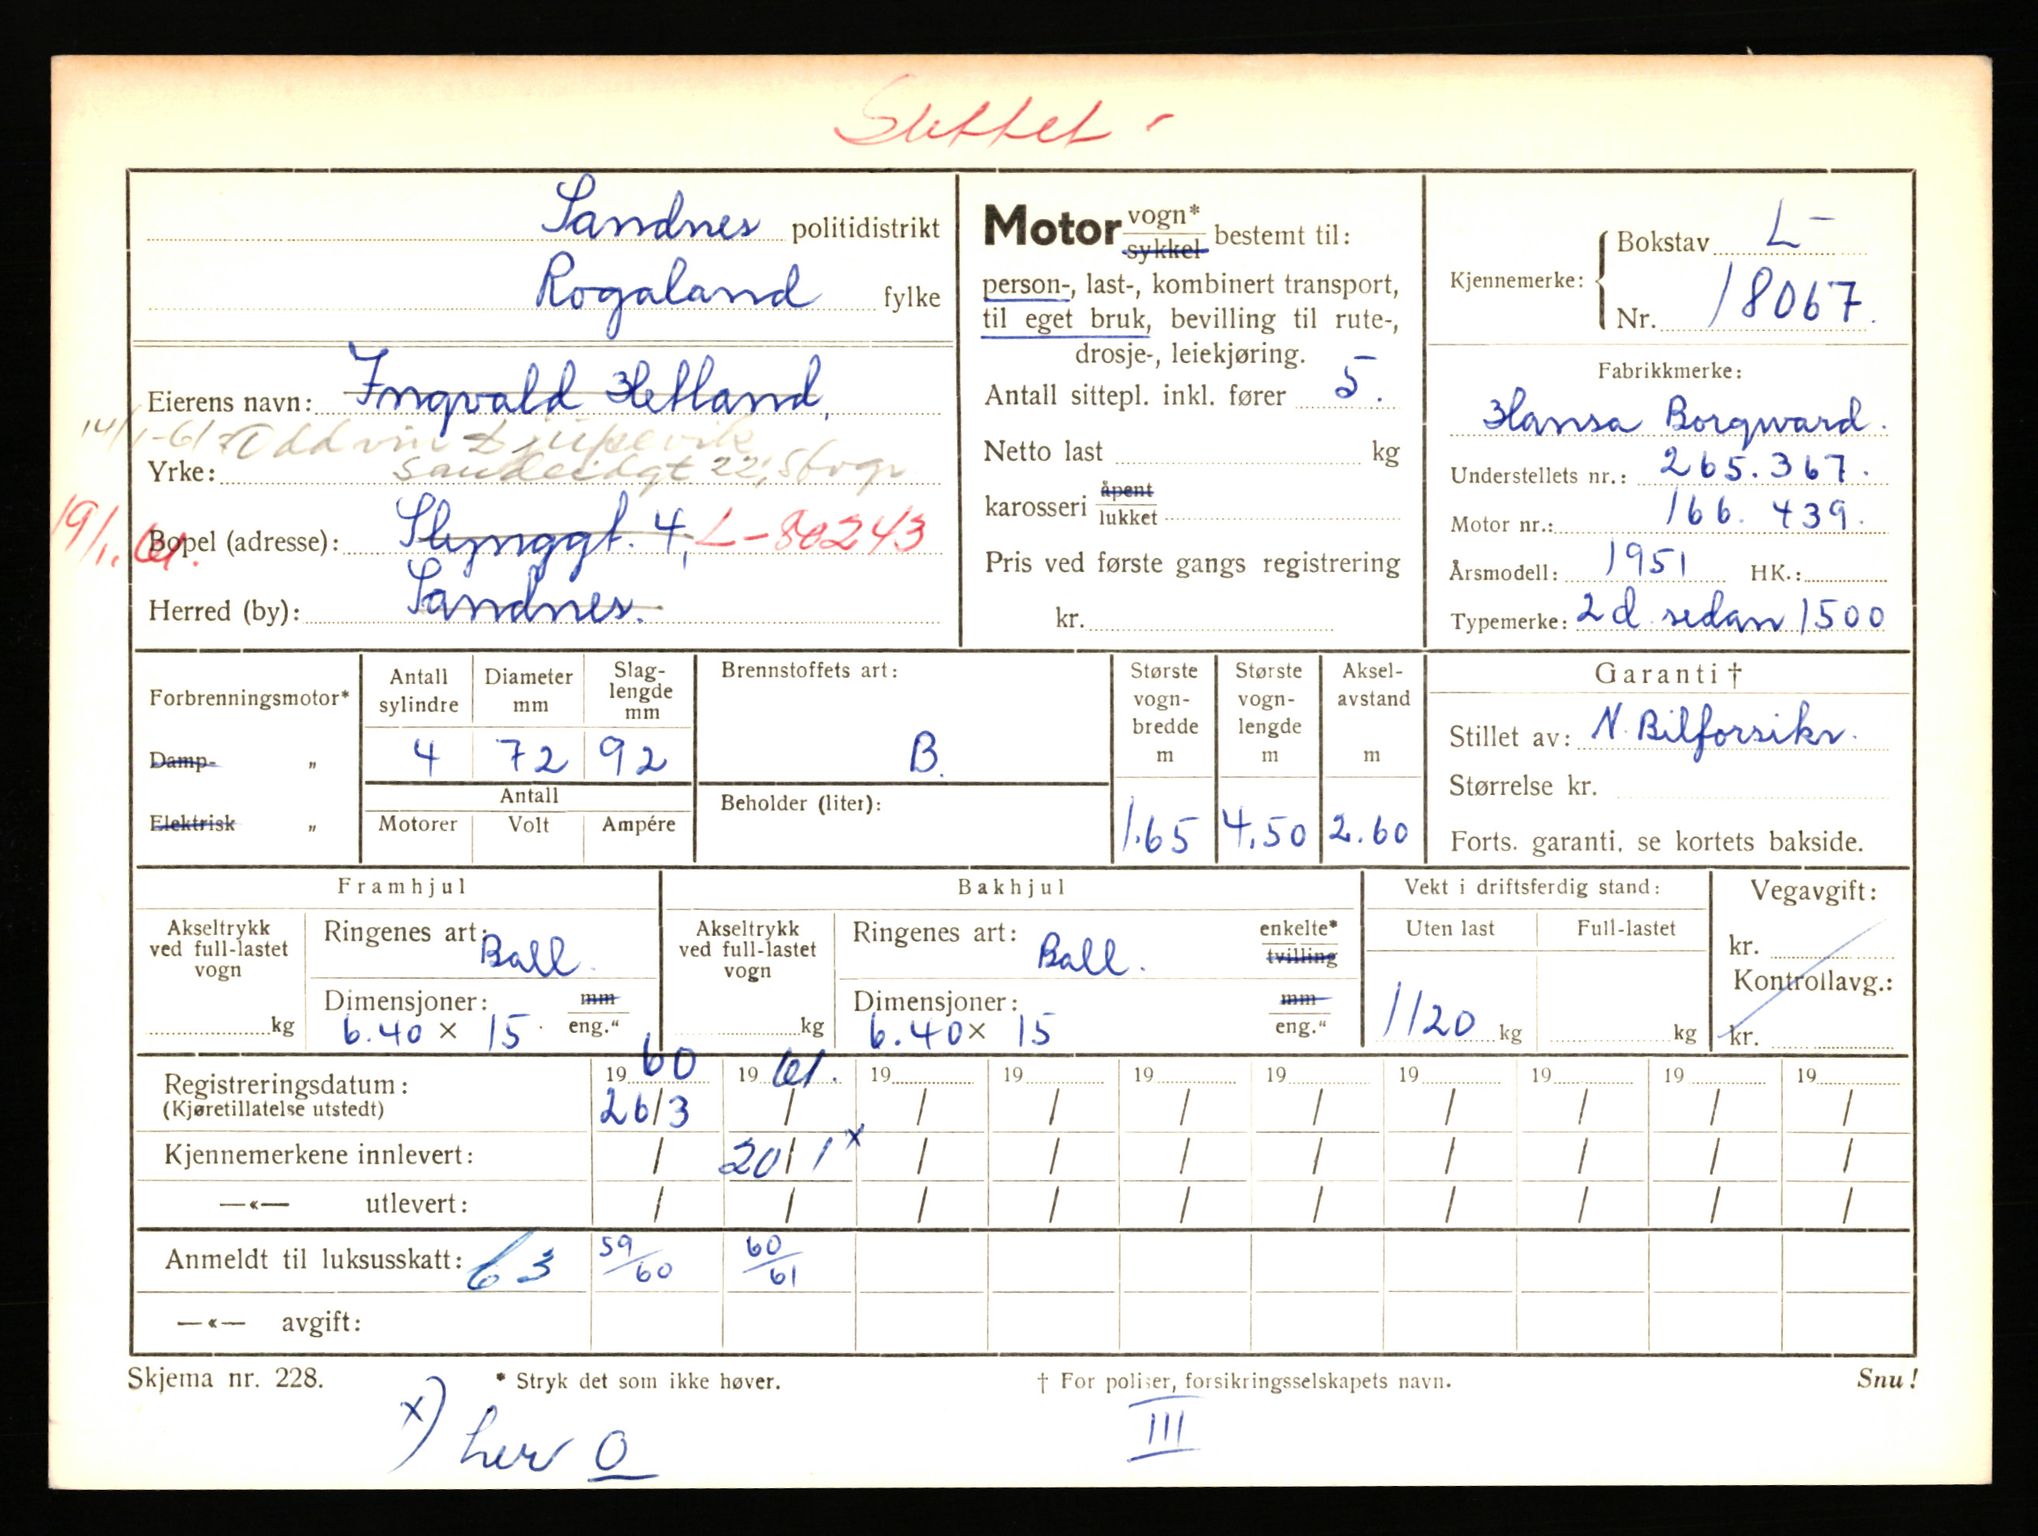 Slettet -
Sandnes politidistrikt
Rogaland fylke
Eierens navn: Ingvald Hetland,
14/1-61 Oddvin Djupevik
Yrke: Sandeidgt 22, Stvgr
19/1.61.
Bopel (adresse): Slynggt. 4, L-80243
Herred (by): Sandnes.
Motor vogn* sykkel bestemt til:
person-, last-, kombinert transport,
til eget bruk, bevilling til rute-,
drosje-, leiekjøring.
Antall sittepl. inkl. fører 5.
Netto last kg
karosseri åpent lukket
Pris ved første gangs registrering
kr.
Kjennemerke: Bokstav L-
Nr. 18067.
Fabrikkmerke:
Hansa Borgward.
Understellets nr.: 265.367.
Motor nr.: 166.439.
Årsmodell: 1951 HK.:
Typemerke: 2d sedan 1500
Forbrenningsmotor*
Damp- „
Elektrisk „
Antall sylindre
Diameter mm
Slag-lengde mm
4 72 92
Antall
Motorer Volt Ampére
Brennstoffets art:
B.
Beholder (liter):
Største vogn-bredde m
1.65
Største vogn-lengde m
4,50
Aksel-avstand m
2.60
Garanti †
Stillet av: N. Bilforsikr.
Størrelse kr.
Forts. garanti, se kortets bakside.
Framhjul
Akseltrykk ved full-lastet vogn
kg
Ringenes art: Ball.
Dimensjoner: mm
6.40 x 15 eng."
Bakhjul
Akseltrykk ved full-lastet vogn
kg
Ringenes art: Ball. enkelte* tvilling
Dimensjoner: mm
6.40 x 15 eng."
Vekt i driftsferdig stand:
Uten last Full-lastet
1120 kg kg
Vegavgift:
kr.
Kontrollavg.:
kr.
Registreringsdatum: 1960 1961. 19 19 19 19 19 19 19 19
(Kjøretillatelse utstedt) 26/3 / / / / / / / / /
Kjennemerkene innlevert: / 20/1 x / / / / / / / /
—«— utlevert: / / / / / / / / / /
Anmeldt til luksusskatt: 63 59/60 60/61
—«— avgift:
Skjema nr. 228. * Stryk det som ikke høver. † For poliser, forsikringsselskapets navn. Snu!
x) her O
III